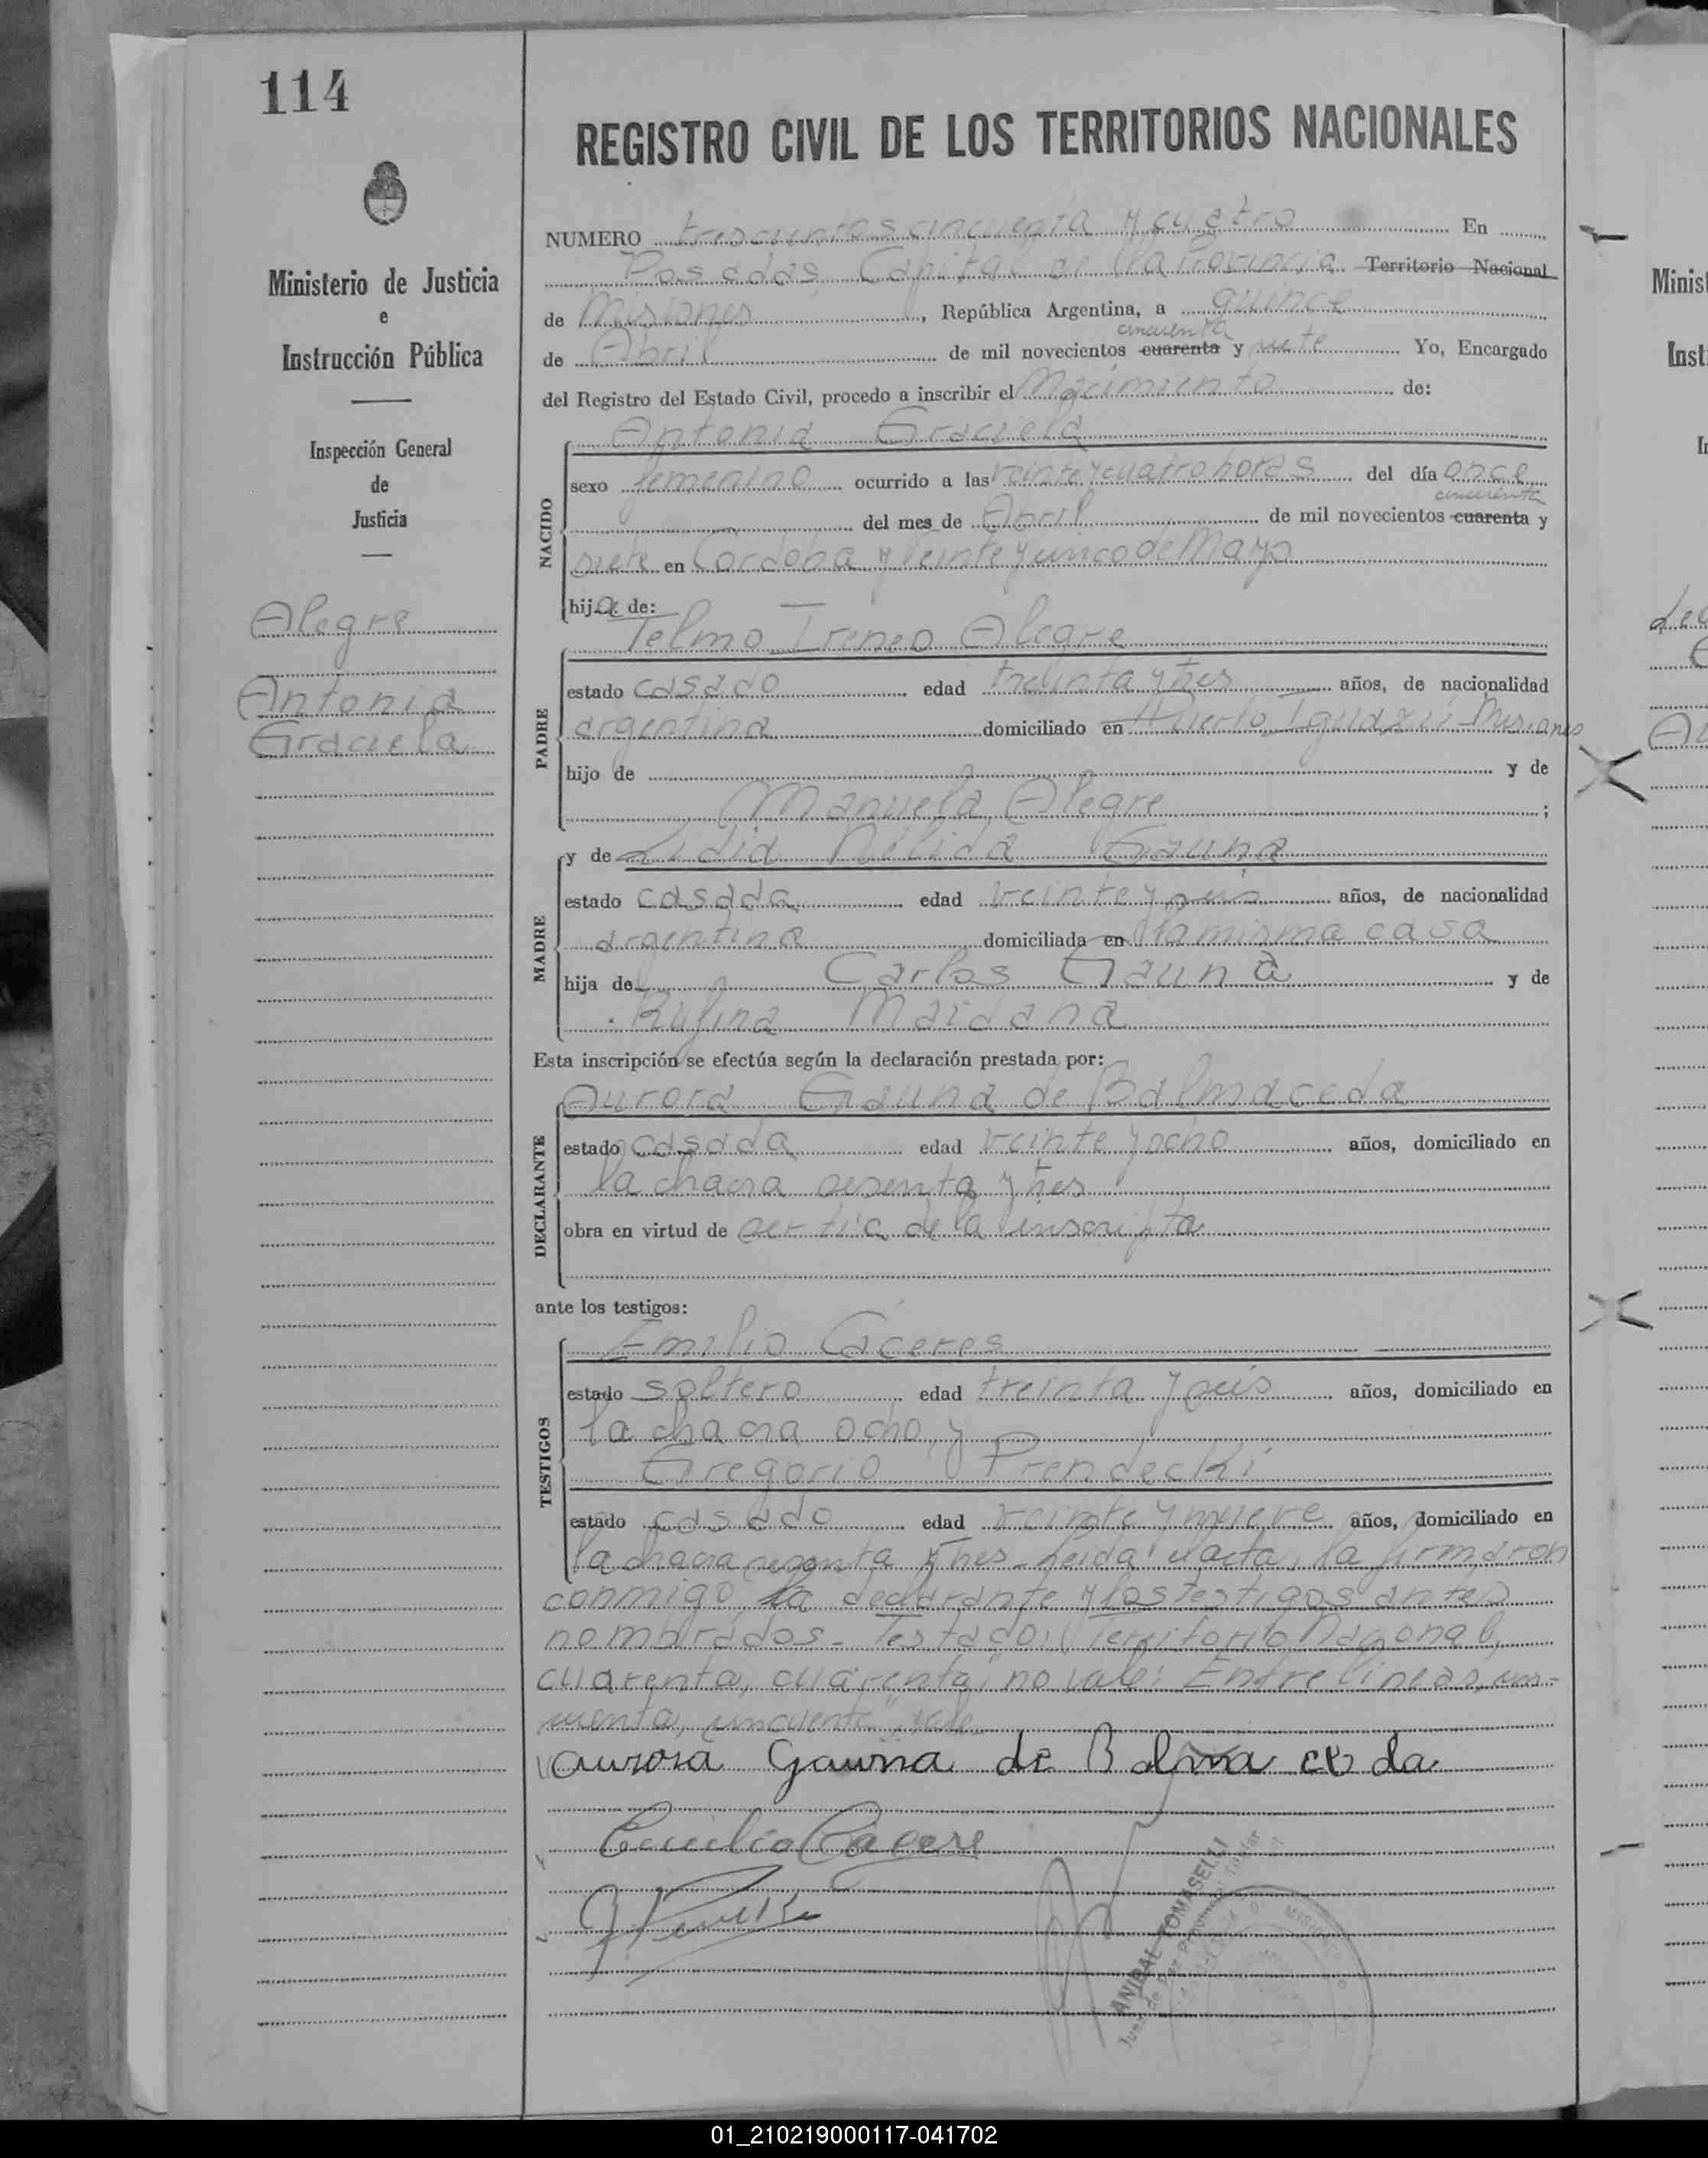 114
REGISTRO CIVIL DE LOS TERRITORIOS NACIONALES
Ministerio de Justicia
e
Instrucción Pública
Inspección General
de
Justicia
Alegre
Antonia
Graciela
NUMERO trescientos cincuenta y cuatro En
Posadas Capital de la Provincia Territorio Nacional
de Misiones, República Argentina, a quince
cincuenta
de Abril de mil novecientos cuarenta y siete Yo, Encargado
del Registro del Estado Civil, procedo a inscribir el Nacimiento de:
NACIDO
Antonia Graciela
sexo femenino ocurrido a las veinte y cuatro horas del día once
cincuenta
del mes de Abril de mil novecientos cuarenta y
siete en Cordoba y Veinte y unico de Mayo
hija de:
PADRE
Telmo Ireneo Alegre
estado casado edad treinta y tres años, de nacionalidad
argentina domiciliado en Puerto Iguazú-Misiones
hijo de y de
Manuela Alegre ;
MADRE
y de Lidia Nélida Gauna
estado casada edad veinte y seis años, de nacionalidad
argentina domiciliada en la misma casa
hija de Carlos Gauna y de
Rufina Maidana
Esta inscripción se efectúa según la declaración prestada por:
DECLARANTE
Aurora Gauna de Balmaceda
estado casada edad veinte y ocho años, domiciliado en
la chacra sesenta y tres
obra en virtud de ser tia de la inscripta
ante los testigos:
TESTIGOS
Emilio Cáceres
estado soltero edad treinta y seis años, domiciliado en
la chacra ocho, y
Gregorio Prendecki
estado casado edad veinte y nueve años, domiciliado en
la chacra sesenta y tres - Leida el acta, la firmaron
conmigo la declarante y los testigos antes
nombrados - Testado: "Territorio Nacional,
cuarenta, cuarenta," no vale: Entre lineas, cin-
cuenta, cincuenta", vale
aurora Gauna de Balma ce da
Emilio Cáceres
ANIBAL TOMASELLI
Juez de Paz Provincial Titular
MISIONES
01_210219000117-041702